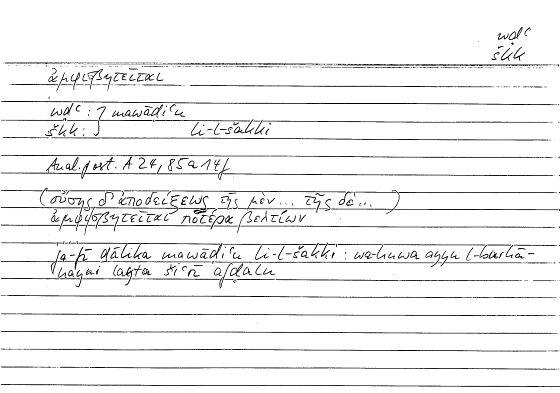 wḍʿ
škk
ἀμφισβητεῖται
wḍʿ : } mawāḍiʿu
škk : } li-l-šakki
Anal. post. A 24, 85a14f
(οὔσης δ' ἀποδείξεως τῆς μὲν... τῆς δὲ...)
ἀμφισβητεῖται πότερα βελτίων
fa-fī ḏālika mawāḍiʿu li-l-šakki : wa-huwa ayyu l-burhā-
nayni layta šiʿrī afḍalu